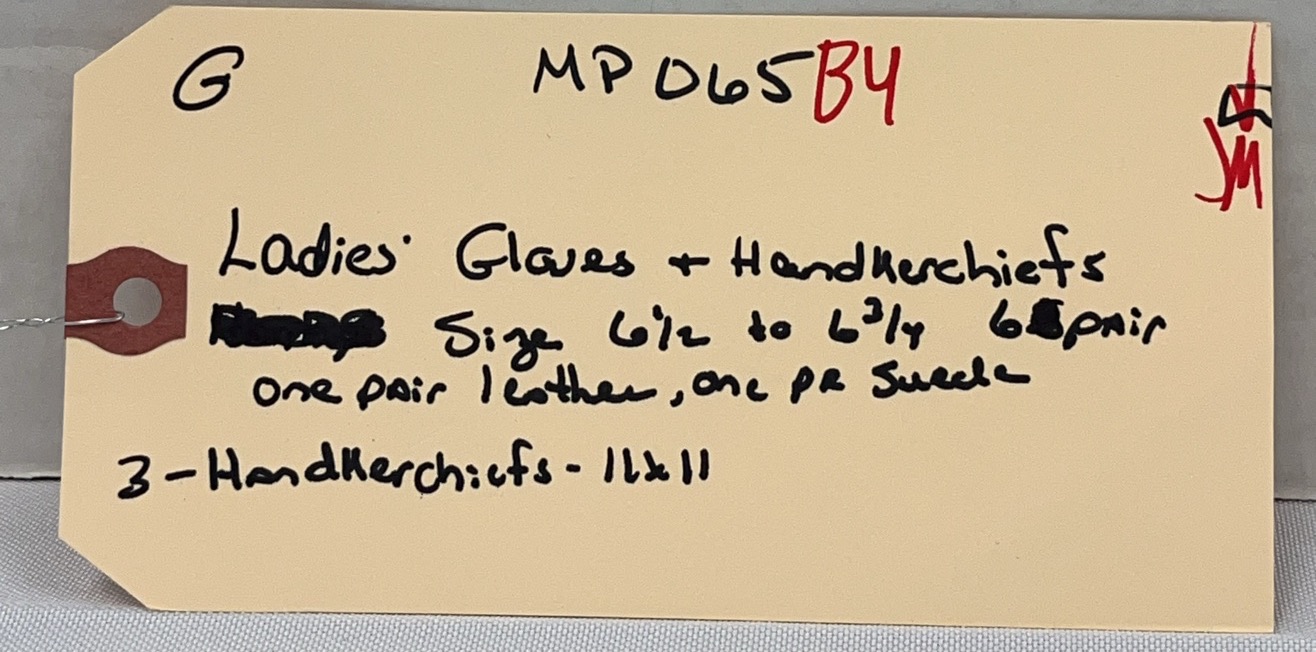 G MP065B4
JM
Ladies' Gloves + Handkerchiefs
Size 6 1/2 to 6 3/4 6 pair
one pair leather, one PR Suede
3 - Handkerchiefs - 11x11